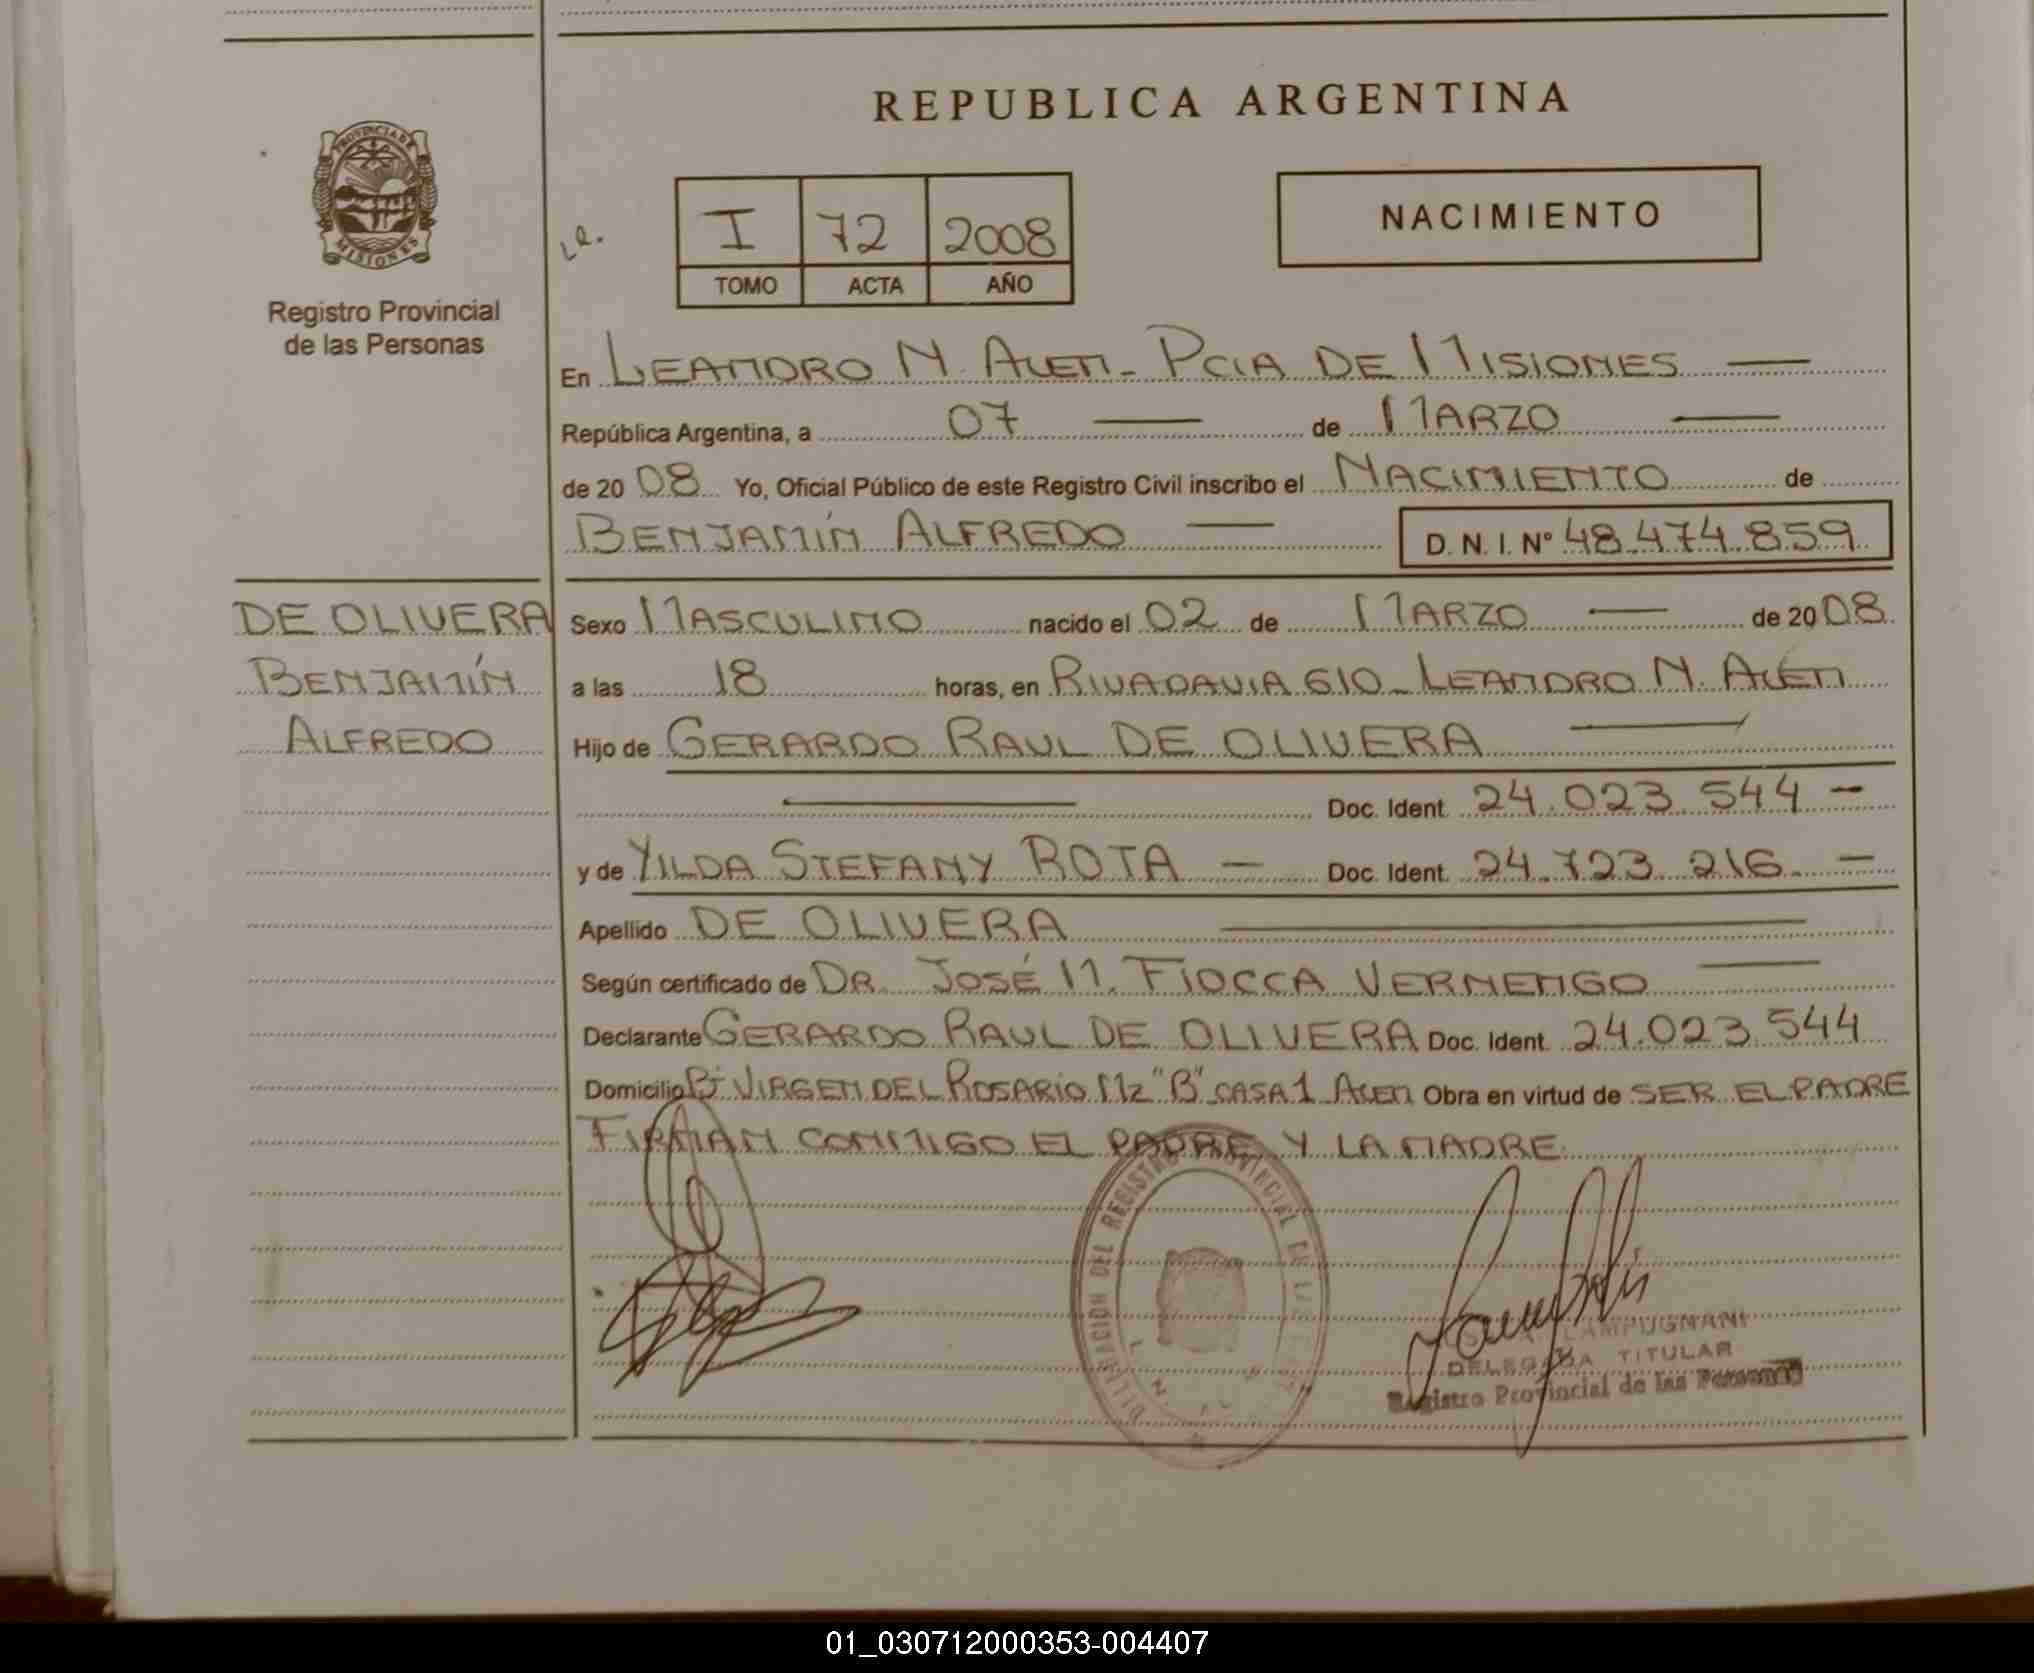 REPUBLICA ARGENTINA
PROVINCIA DE
MISIONES
Registro Provincial
de las Personas
I 72 2008
TOMO ACTA AÑO
NACIMIENTO
En LEANDRO N. ALEM - PCIA DE MISIONES
República Argentina, a 07 de MARZO
de 2008 Yo, Oficial Público de este Registro Civil inscribo el NACIMIENTO de
BENJAMÍN ALFREDO D. N. I. Nº 48.474.859
DE OLIVERA
BENJAMÍN
ALFREDO
Sexo MASCULINO nacido el 02 de MARZO de 2008
a las 18 horas, en RIVADAVIA 610 - LEANDRO N. ALÉM
Hijo de GERARDO RAUL DE OLIVERA
Doc. Ident. 24.023.544 -
y de YILDA STEFANY ROTA - Doc. Ident. 24.723.216. -
Apellido DE OLIVERA
Según certificado de DR. JOSÉ M. FIOCCA VERNENGO
Declarante GERARDO RAUL DE OLIVERA Doc. Ident. 24.023.544
Domicilio Bº VIRGEN DEL ROSARIO Mz "B" CASA 1 ALEM Obra en virtud de SER EL PADRE
FIRMAN CONMIGO EL PADRE Y LA MADRE.
DELEGACION DEL REGISTRO PROVINCIAL DE LAS
LAMPUGNANI
DELEGADA TITULAR
Registro Provincial de las Personas
01_030712000353-004407